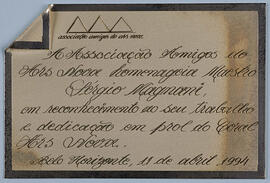 associação amigos do ars nova.
A Associação Amigos do
Ars Nova homenageia Maestro
Sérgio Magnani,
em reconhecimento ao seu trabalho
e dedicação em prol do Coral
Ars Nova.
Belo Horizonte, 18 de abril 1994